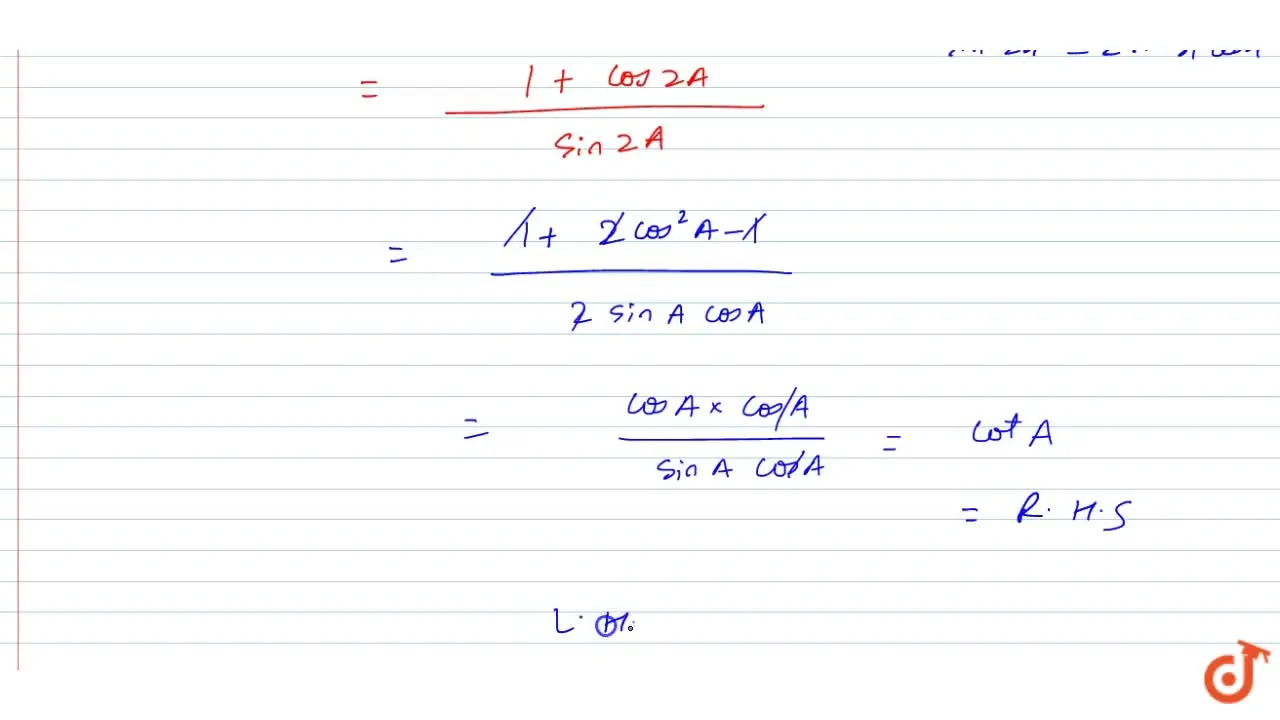 = 1 + cos 2A
sin 2A
= 1 + 2 cos² A - 1
2 sin A cos A
= cos A × cos A
sin A cos A
= cot A
= R. H. S
L. H.